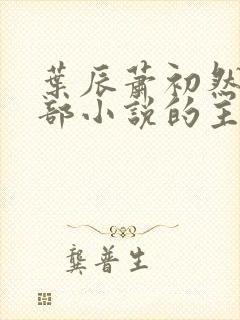 葉辰蕭初然
部小說的主
龔普生